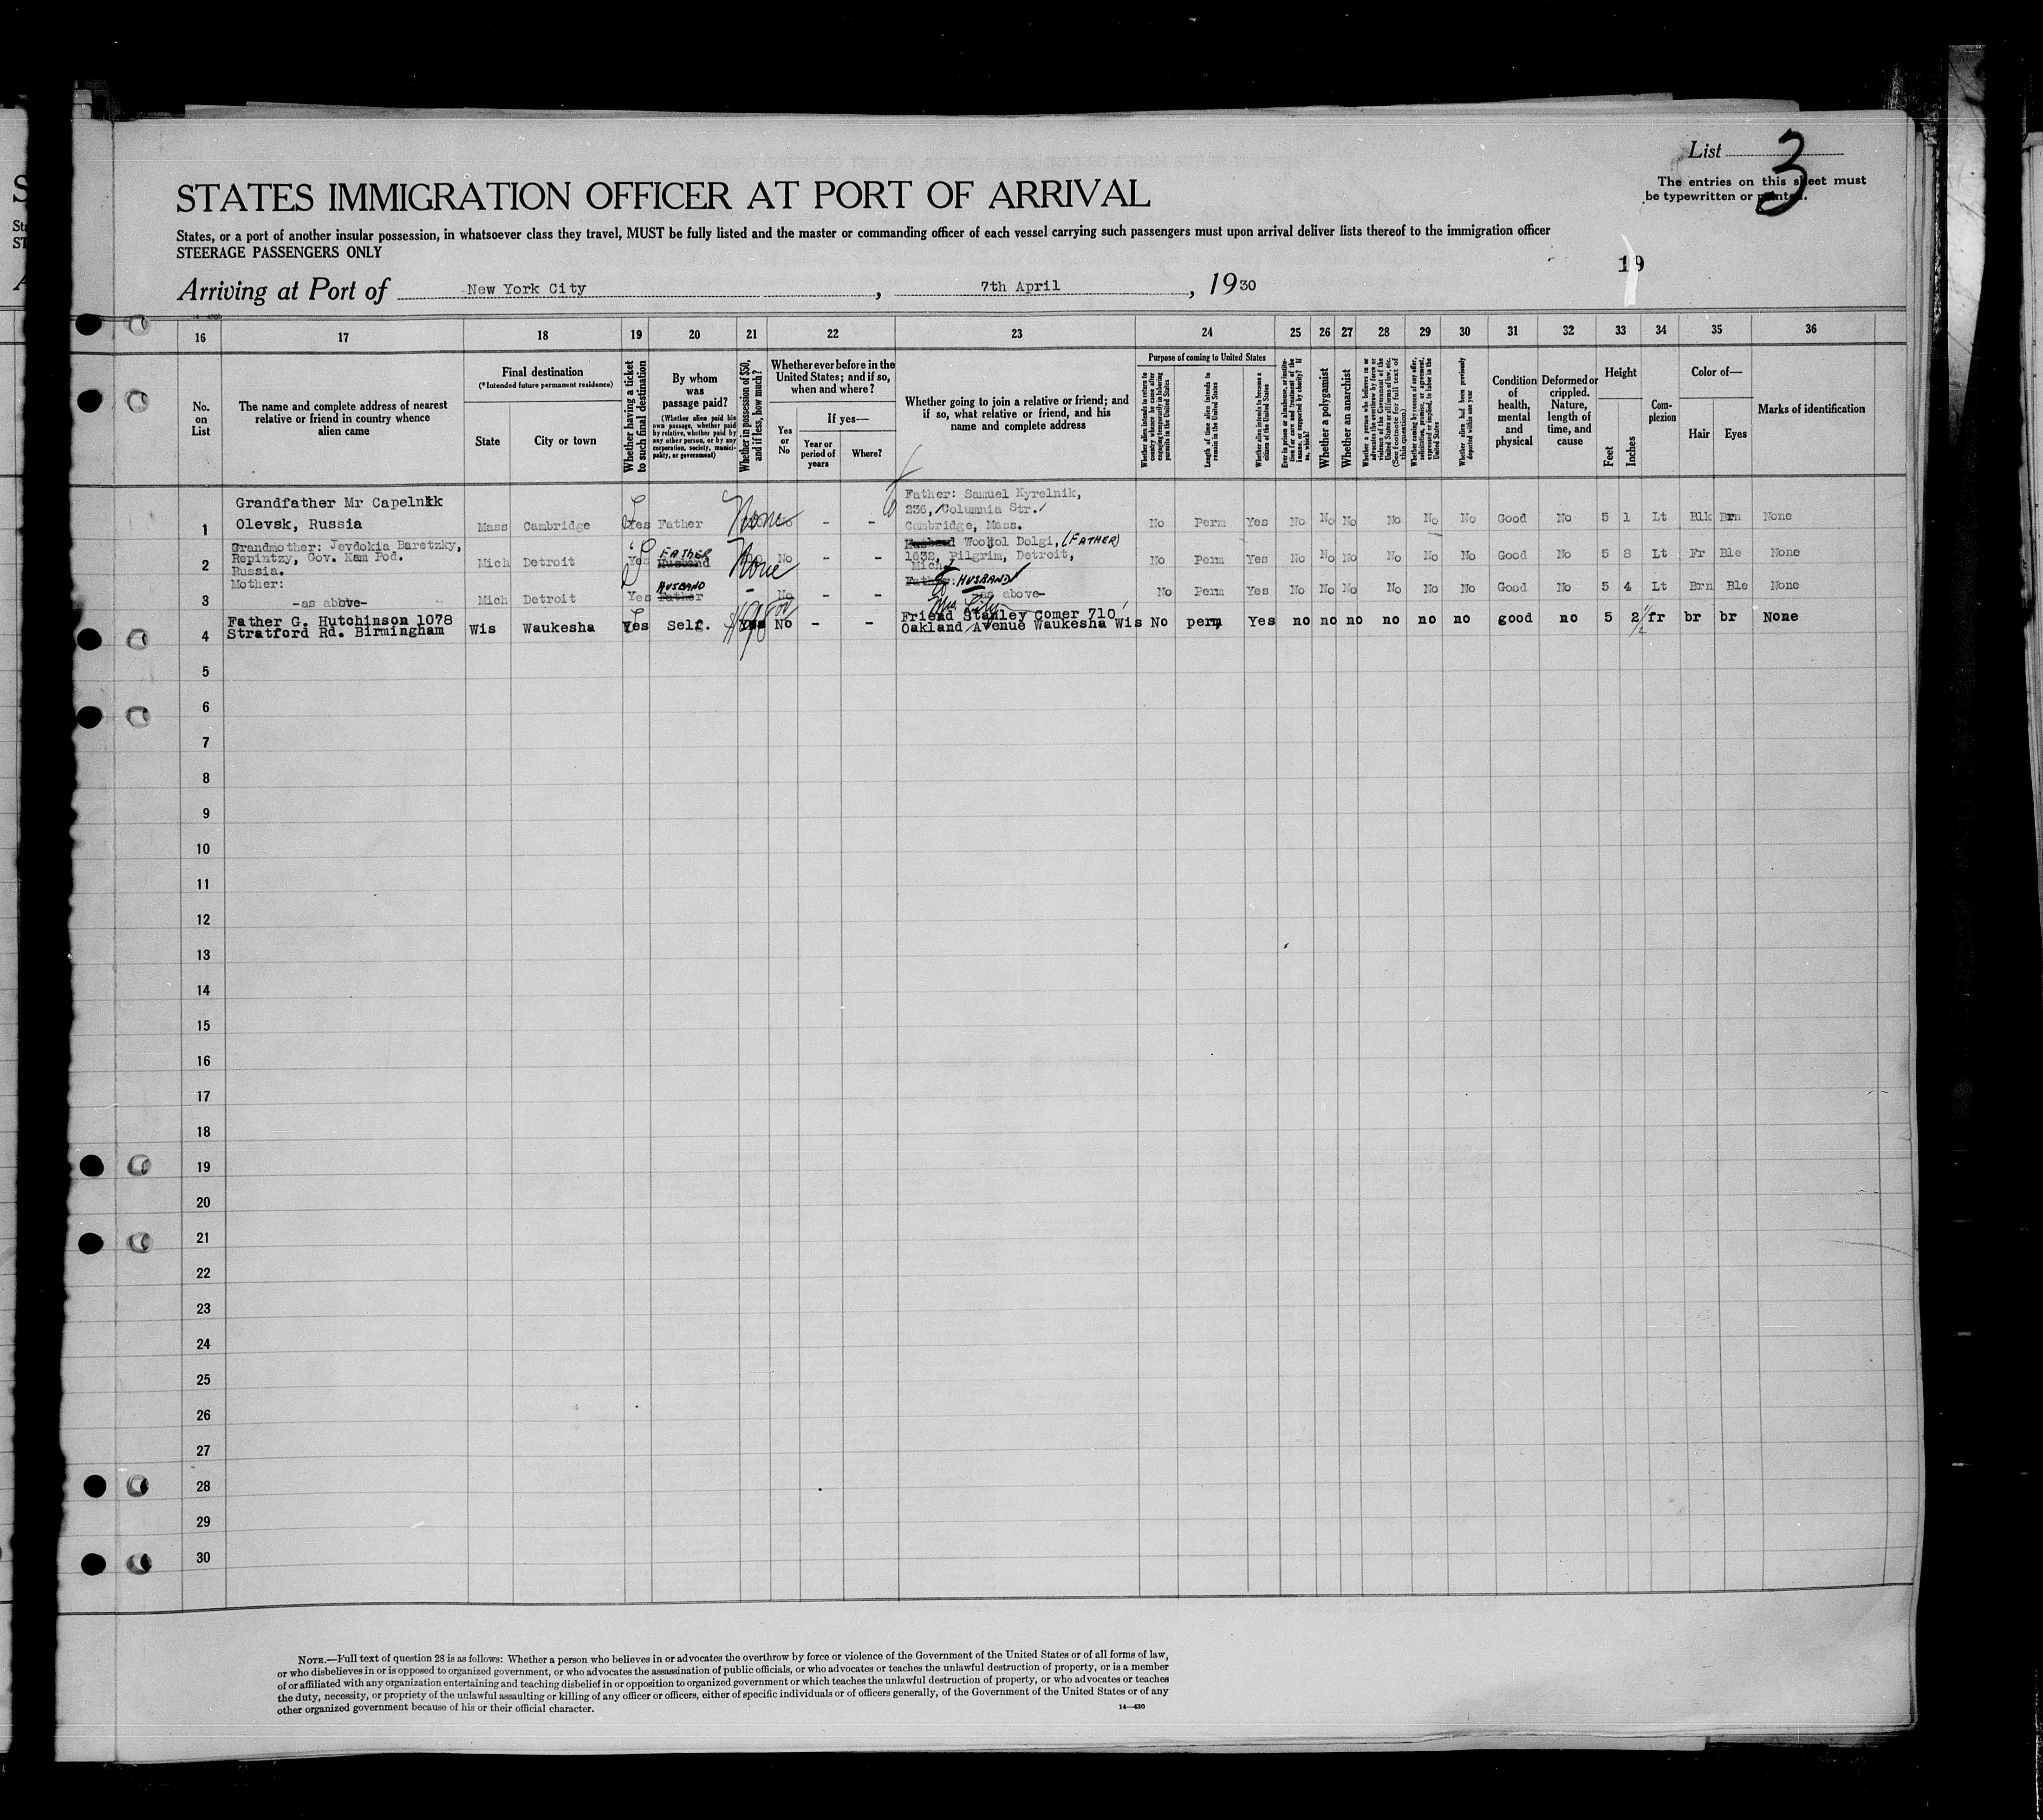 List 3
The entries on this sheet must
be typewritten or printed.
STATES IMMIGRATION OFFICER AT PORT OF ARRIVAL
States, or a port of another insular possession, in whatsoever class they travel, MUST be fully listed and the master or commanding officer of each vessel carrying such passengers must upon arrival deliver lists thereof to the immigration officer
STEERAGE PASSENGERS ONLY
19
Arriving at Port of New York City, 7th April, 1930
16 17 18 19 20 21 22 23 24 25 26 27 28 29 30 31 32 33 34 35 36
No.
on
List
The name and complete address of nearest
relative or friend in country whence
alien came
Final destination
(*Intended future permanent residence)
State
City or town
Whether having a ticket
to such final destination
By whom
was
passage paid?
(Whether alien paid his
own passage, whether paid
by relative, whether paid by
any other person, or by any
corporation, society, munici-
pality, or government)
Whether in possession of $50,
and if less, how much?
Whether ever before in the
United States; and if so,
when and where?
Yes
or
No
If yes—
Year or
period of
years
Where?
Whether going to join a relative or friend; and
if so, what relative or friend, and his
name and complete address
Purpose of coming to United States
Whether alien intends to return to
country whence he came after
engaging temporarily in laboring
pursuits in the United States
Length of time alien intends to
remain in the United States
Whether alien intends to become a
citizen of the United States
Ever in prison or almshouse, or institu-
tion for care and treatment of the
insane, or supported by charity? If
so, which?
Whether a polygamist
Whether an anarchist
Whether a person who believes in or
advocates the overthrow by force or
violence of the Government of the
United States or all forms of law, etc.
(See footnote for full text of
this question)
Whether coming by reason of any offer,
solicitation, promise, or agreement,
expressed or implied, to labor in the
United States
Whether alien had been previously
deported within one year
Condition
of
health,
mental
and
physical
Deformed or
crippled.
Nature,
length of
time, and
cause
Height
Feet
Inches
Com-
plexion
Color of—
Hair
Eyes
Marks of identification
Grandfather Mr Capelnik
Father: Samuel Kyrelnik,
236, Columnia Str.
1 Olevsk, Russia Mass Cambridge Yes Father None No - - Cambridge, Mass. No Perm Yes No No No No No No Good No 5 1 Lt Blk Brn None
Grandmother: Jevdokia Baretzky,
Husband Wootol Dolgi, (FATHER)
FATHER
Repintzy, Gov. Kam Pod. 1632, Pilgrim, Detroit,
2 Russia. Mich Detroit Yes Husband None No - - Mich. No Perm Yes No No No No No No Good No 5 8 Lt Fr Ble None
Mother: HUSBAND Father: HUSBAND
3 -as above- Mich Detroit Yes Father - No - - -as above- No Perm Yes No No No No No No Good No 5 4 Lt Brn Ble None
Mrs
Father G. Hutchinson 1078 Friend Stanley Comer 710
4 Stratford Rd. Birmingham Wis Waukesha Yes Self. Yes No - - Oakland Avenue Waukesha Wis No perm Yes no no no no no no good no 5 2 1/2 fr br br None
5
6
7
8
9
10
11
12
13
14
15
16
17
18
19
20
21
22
23
24
25
26
27
28
29
30
NOTE.—Full text of question 28 is as follows: Whether a person who believes in or advocates the overthrow by force or violence of the Government of the United States or of all forms of law,
or who disbelieves in or is opposed to organized government, or who advocates the assassination of public officials, or who advocates or teaches the unlawful destruction of property, or is a member
of or affiliated with any organization entertaining and teaching disbelief in or opposition to organized government or which teaches the unlawful destruction of property, or who advocates or teaches
the duty, necessity, or propriety of the unlawful assaulting or killing of any officer or officers, either of specific individuals or of officers generally, of the Government of the United States or of any
other organized government because of his or their official character.
14—430